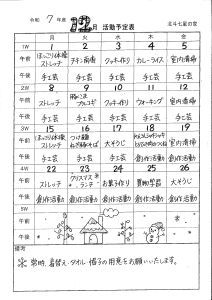 令和 7 年度 12月 活動予定表
月 火 水 木 金
1W 1 2 3 4 5
午前 ほっこり体操 ストレッチ チキン南蛮 クッキー作り カレーライス 室内清掃
午後 手工芸 手工芸 手工芸 手工芸 手工芸
2W 8 9 10 11 12
午前 ストレッチ プルコギ クッキー作り ウォーキング 室内清掃
午後 手工芸 手工芸 手工芸 手工芸 手工芸
3W 15 16 17 18 19
午前 ほっこり体操 ストレッチ 大そうじ 大そうじ
午後 手工芸 手工芸 創作活動 創作活動
4W 22 23 24 25 26
午前 ストレッチ クリスマス ランチ お菓子作り 買物学習 大そうじ
午後 創作活動 創作活動 創作活動 創作活動 創作活動
5W
午前
午後
備考
常時、着替え・タオル・帽子の用意をお願いいたします。